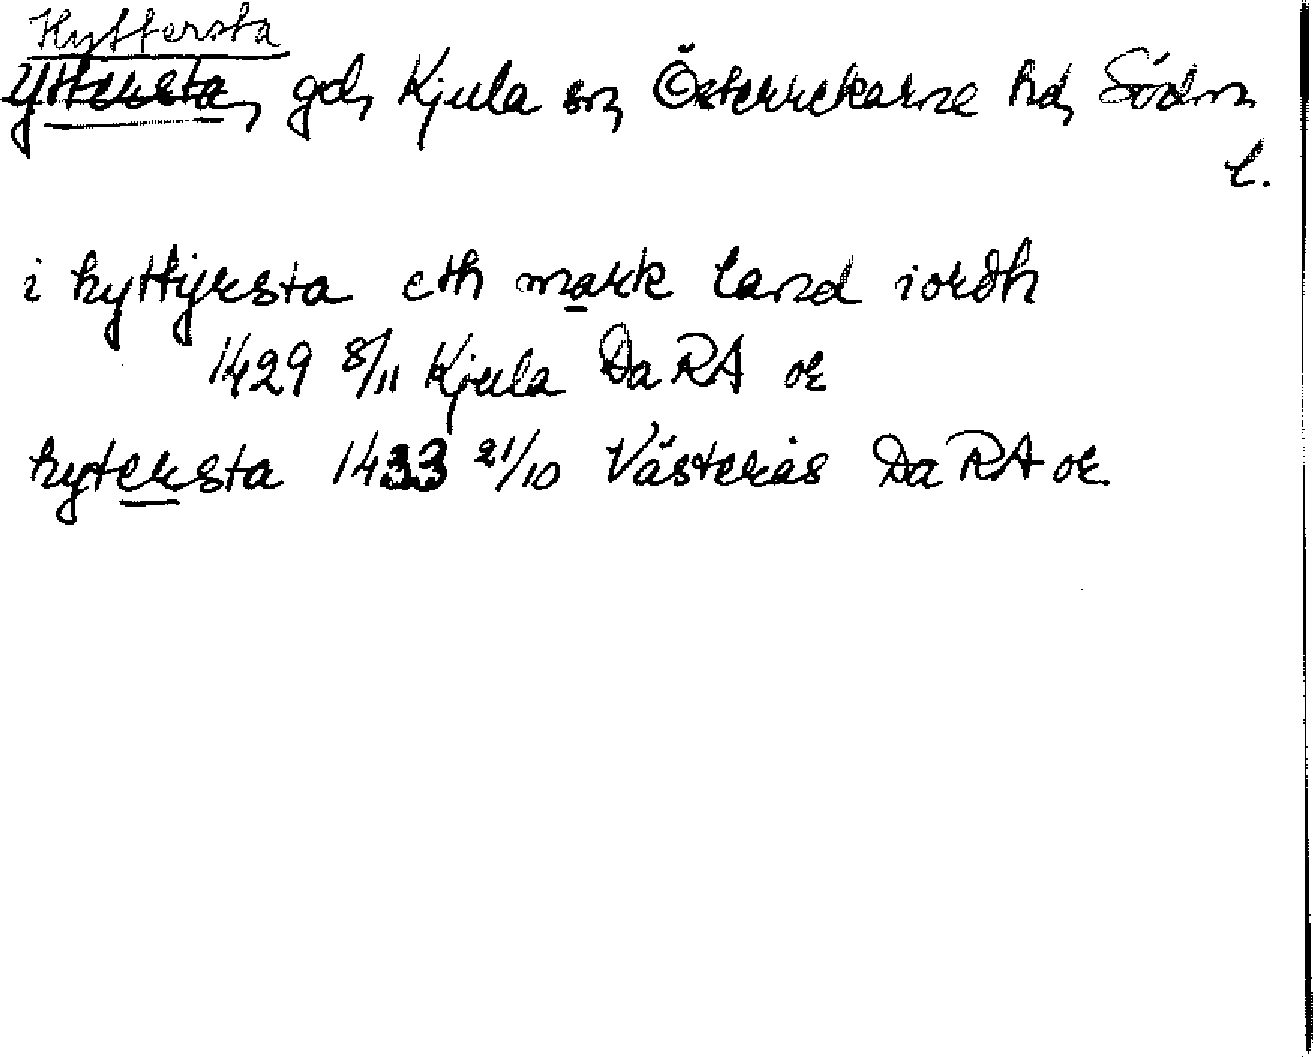 Hyttersta
Yttersta, gd, Kjula sn, Österrekarne hd, Södm
l.
i hyttyrsta eth mark land iordh
1429 8/11 Kjula Da RA or
hytersta 1433 21/10 Västerås Da RA or.